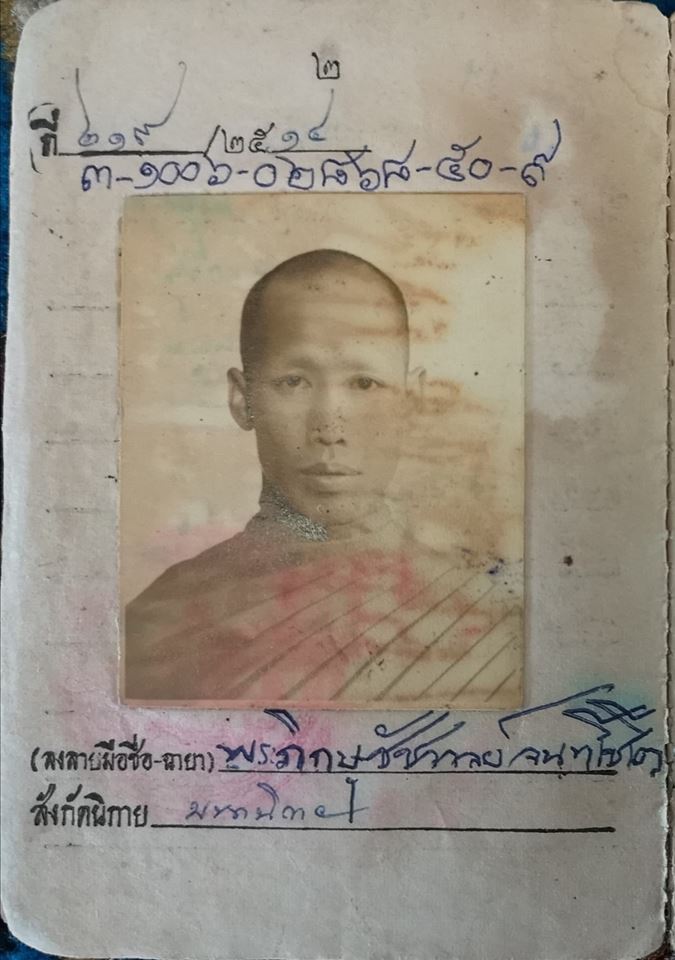 ๒
ที่ ๒๑๙/๒๕๑๔
๓-๑๐๐๖-๐๒๘๖๘-๕๐-๙
(ลงลายมือชื่อ-ฉายา) พระภิกษุชัชวาลย์ จนฺทโชโต
สังกัดนิกาย มหานิกาย